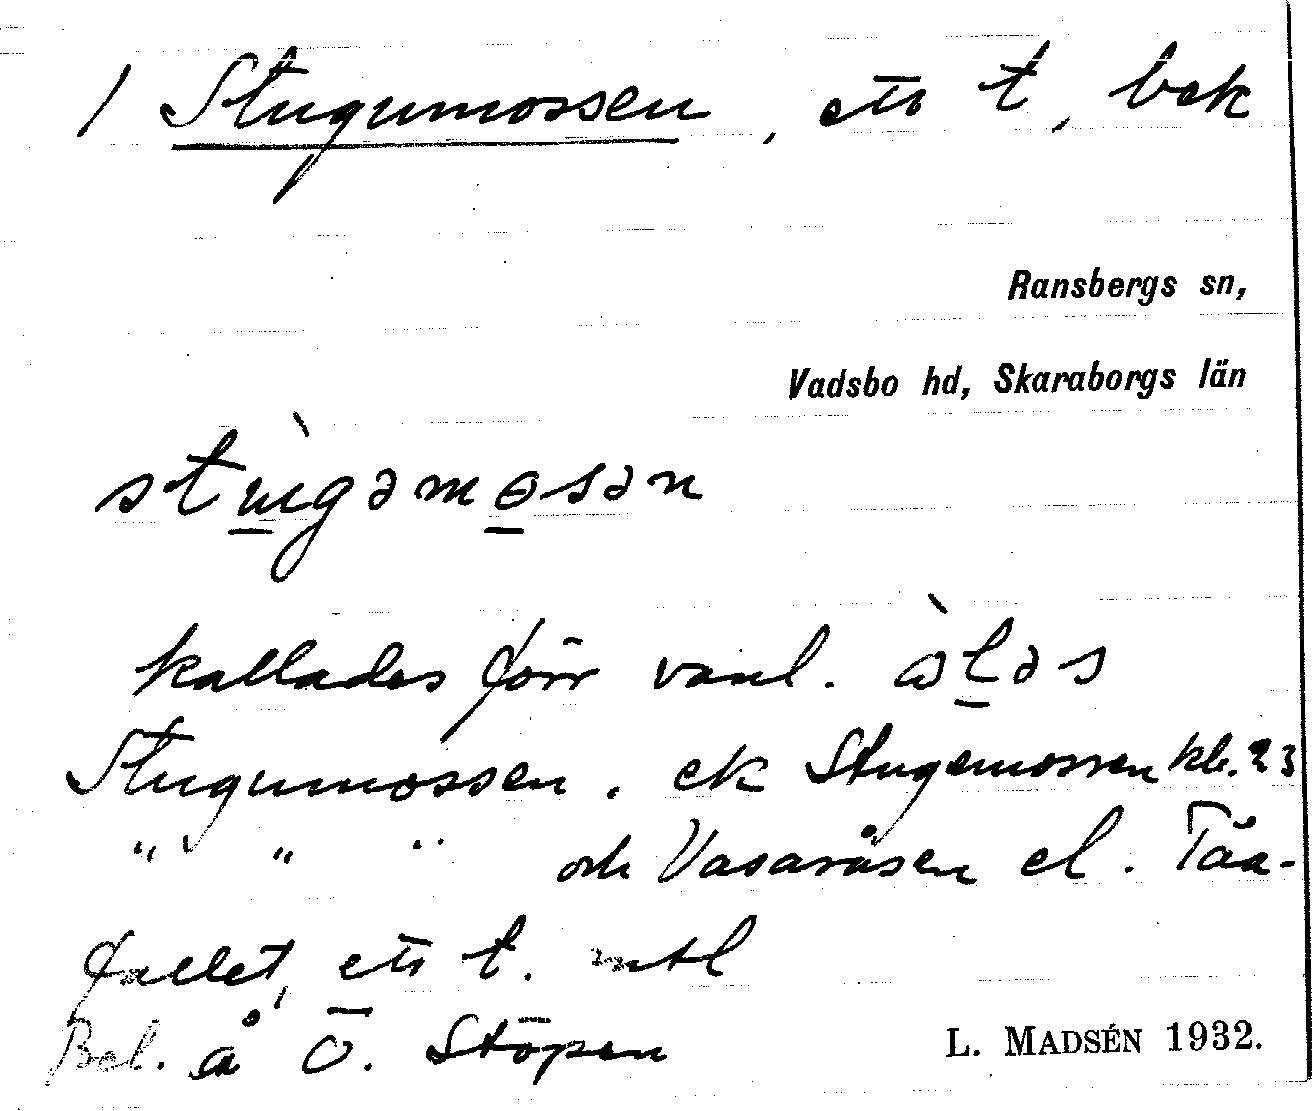 1 Stugumossen, ett t, bek
Ransbergs sn,
Vadsbo hd, Skaraborgs län
kallades förr vanl.
Stugumossen. ek Stugemossen kb. 23
" " " och Vasaråsen el. Tåa-
fallet, ett t. mtl
Bel. å Ö. Stöpen
L. MADSÉN 1932.